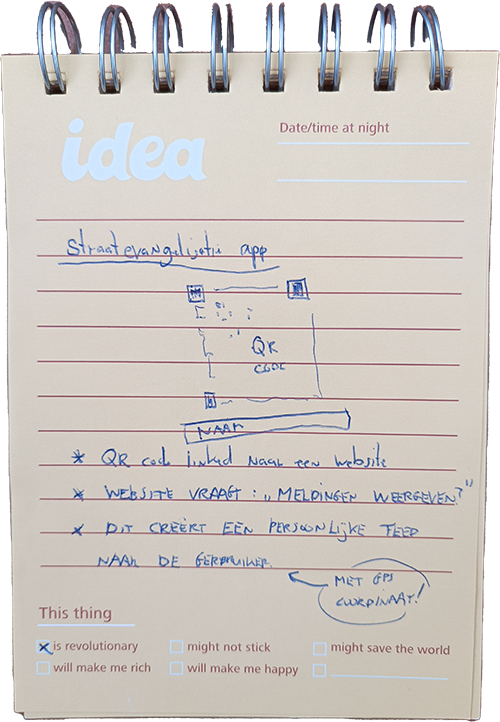 idea
Date/time at night
Straatevangelisatie app
QR
CODE
NAAM
* QR code linked naar een website
* WEBSITE VRAAGT: „MELDINGEN WEERGEVEN?"
* DIT CREËRT EEN PERSOONLIJKE FEED
NAAR DE GEBRUIKER
MET GPS
COORDINAAT!
This thing
x is revolutionary
might not stick
might save the world
will make me rich
will make me happy